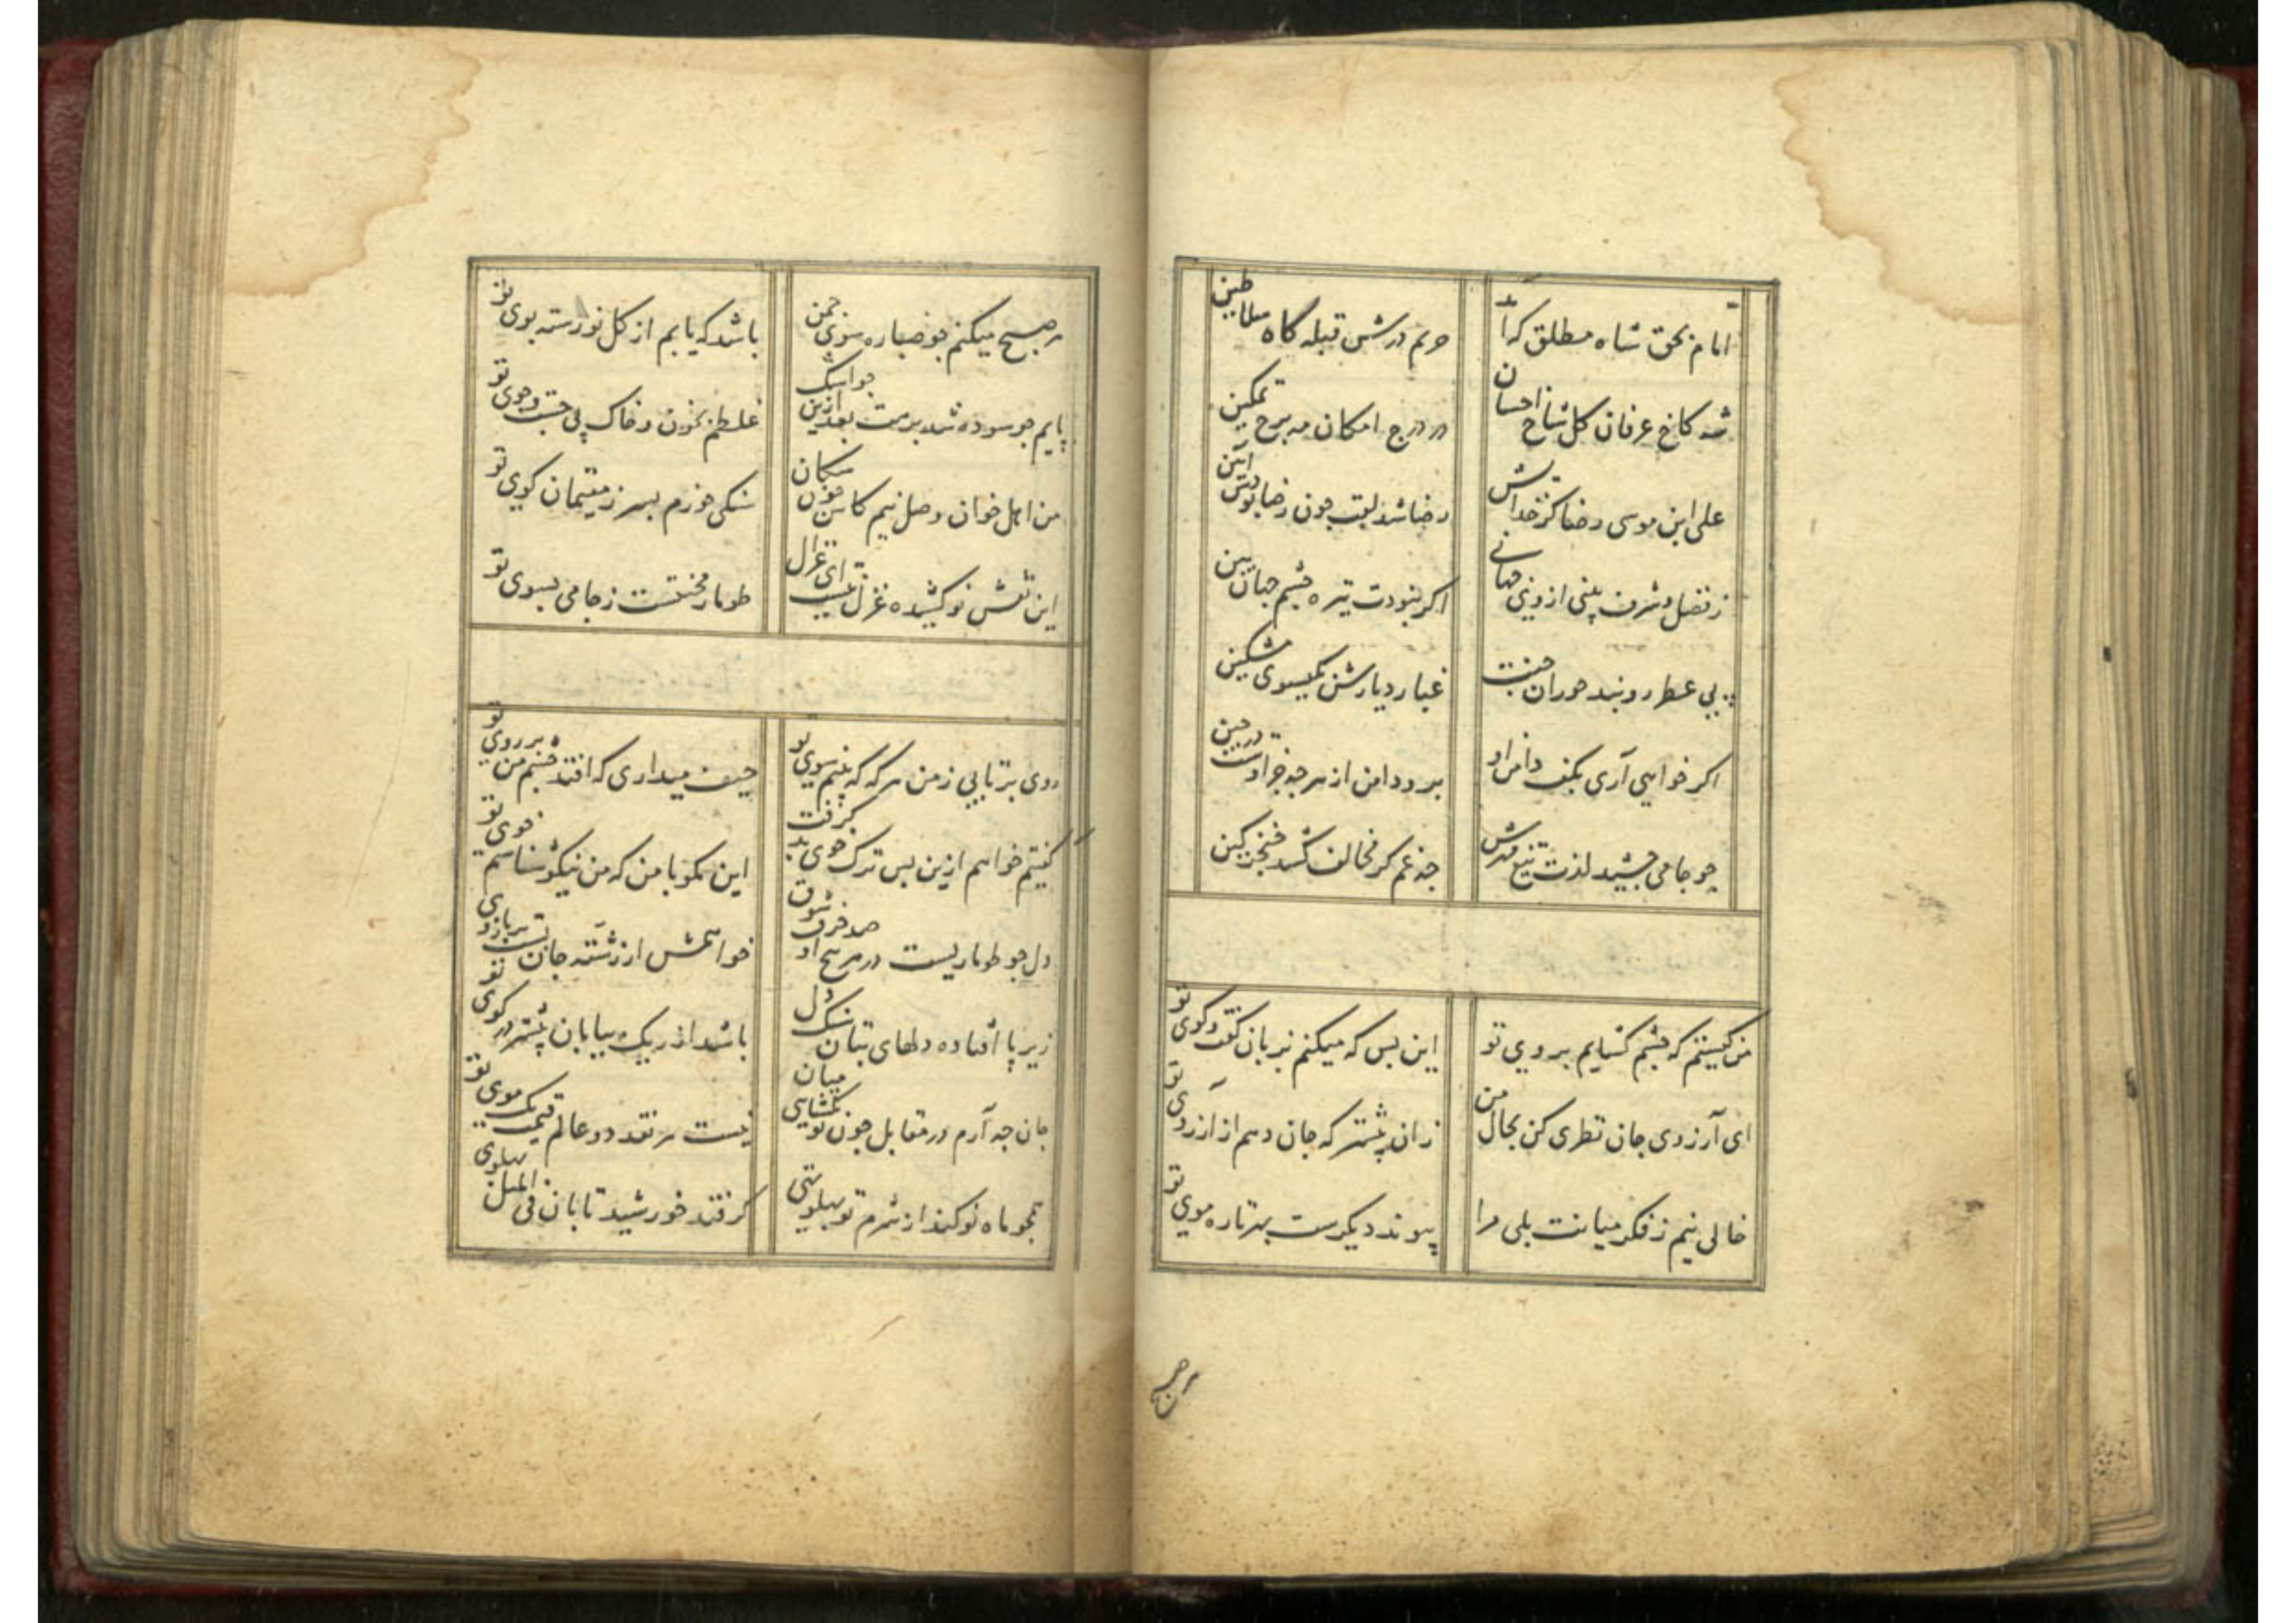 امام بحق شاه مطلق که آمد
حریم درش قبله گاه سلاطین
شه کاخ عرفان کل شاخ احسان
در درج امکان مه برج تمکین
علی ابن موسی رضا کز خدایش
رضا شد لقب چون رضا بودش آیین
ز فضل و شرف بینی او را جهانی
اگر نبودت تیره چشم جهان بین
پی عطر روبند حوران جنت
غبار دیارش بکیسوی مشکین
اگر خواهی آری بکف دامن او
برو دامن از هر چه جز اوست در چین
چو جامی چشید لذت تیغ مهرش
چه غم کر مخالف کشد خنجر کین
من کیستم که چشم کشایم بروی تو
این بس که میکنم بزبان کفت و کوی تو
ای آرزوی جان نظری کن بحال من
زان پیشتر که جان دهم از آرزوی تو
خالی نیم ز فکر میانت بلی مرا
پیوند دیکرست بهر تاره موی تو
هر صبح
هر صبح میکنم چو صبا ره سوی چمن
باشد که یابم از کل نورسته بوی تو
پایم چو سوده شد برهت بعد ازین چو اشک
غلطم بخون و خاک پی جست و جوی تو
من اهل خوان وصل نیم کاش چون سکان
سنکی خورم بسر ز مقیمان کوی تو
این نقش نو کشیده غزل نیست ای غزال
طومار محنتست ز جامی بسوی تو
روی برتابی ز من هر که که بینم سوی تو
حیف میداری که افتد چشم من بر روی تو
کفتیم خواهم ازین پس ترک خوی بد کرفت
این مکو با من که من نیکو شناسم خوی تو
دل چو طوماریست در هر پیچ او صد حرف شوق
خواهمش از رشته جان بست بر بازوی تو
زیر پا افتاده دلهای بتان سنک دل
باشد از ریک بیابان بیشتر در کوی تو
جان چه آرم در مقابل چون تو بکشایی میان
نیست هر نقد دو عالم قیمت یک موی تو
همچو ماه نو کند از شرم تو پهلو تهی
کر فتد خورشید تابان فی المثل پهلوی